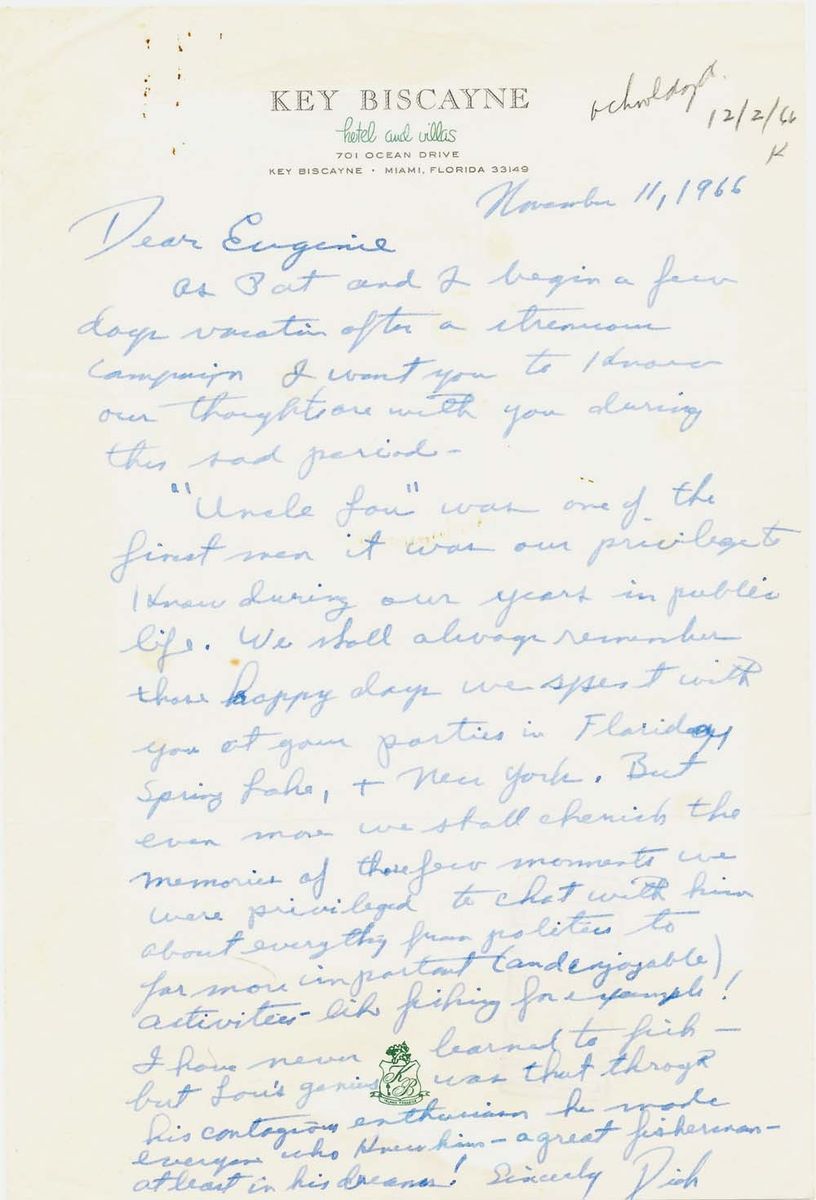 KEY BISCAYNE
hotel and villas
701 OCEAN DRIVE
KEY BISCAYNE • MIAMI, FLORIDA 33149
12/2/66
K
November 11, 1966
Dear Eugenie
As Pat and I begin a few
days vacation after a strenuous
campaign I want you to know
our thoughts are with you during
this sad period -
"Uncle Lou" was one of the
finest men it was our privilege to
know during our years in public
life. We shall always remember
those happy days we spent with
you at your parties in Florida,
Spring Lake, + New York. But
even more we shall cherish the
memories of those few moments we
were privileged to chat with him
about everything from politics to
far more important (and enjoyable)
activities - like fishing for example!
I have never learned to fish -
but Lou's genius was that through
KB
his contagious enthusiasm he made
everyone who knew him - a great fisherman -
at least in his dreams! Sincerely Dick